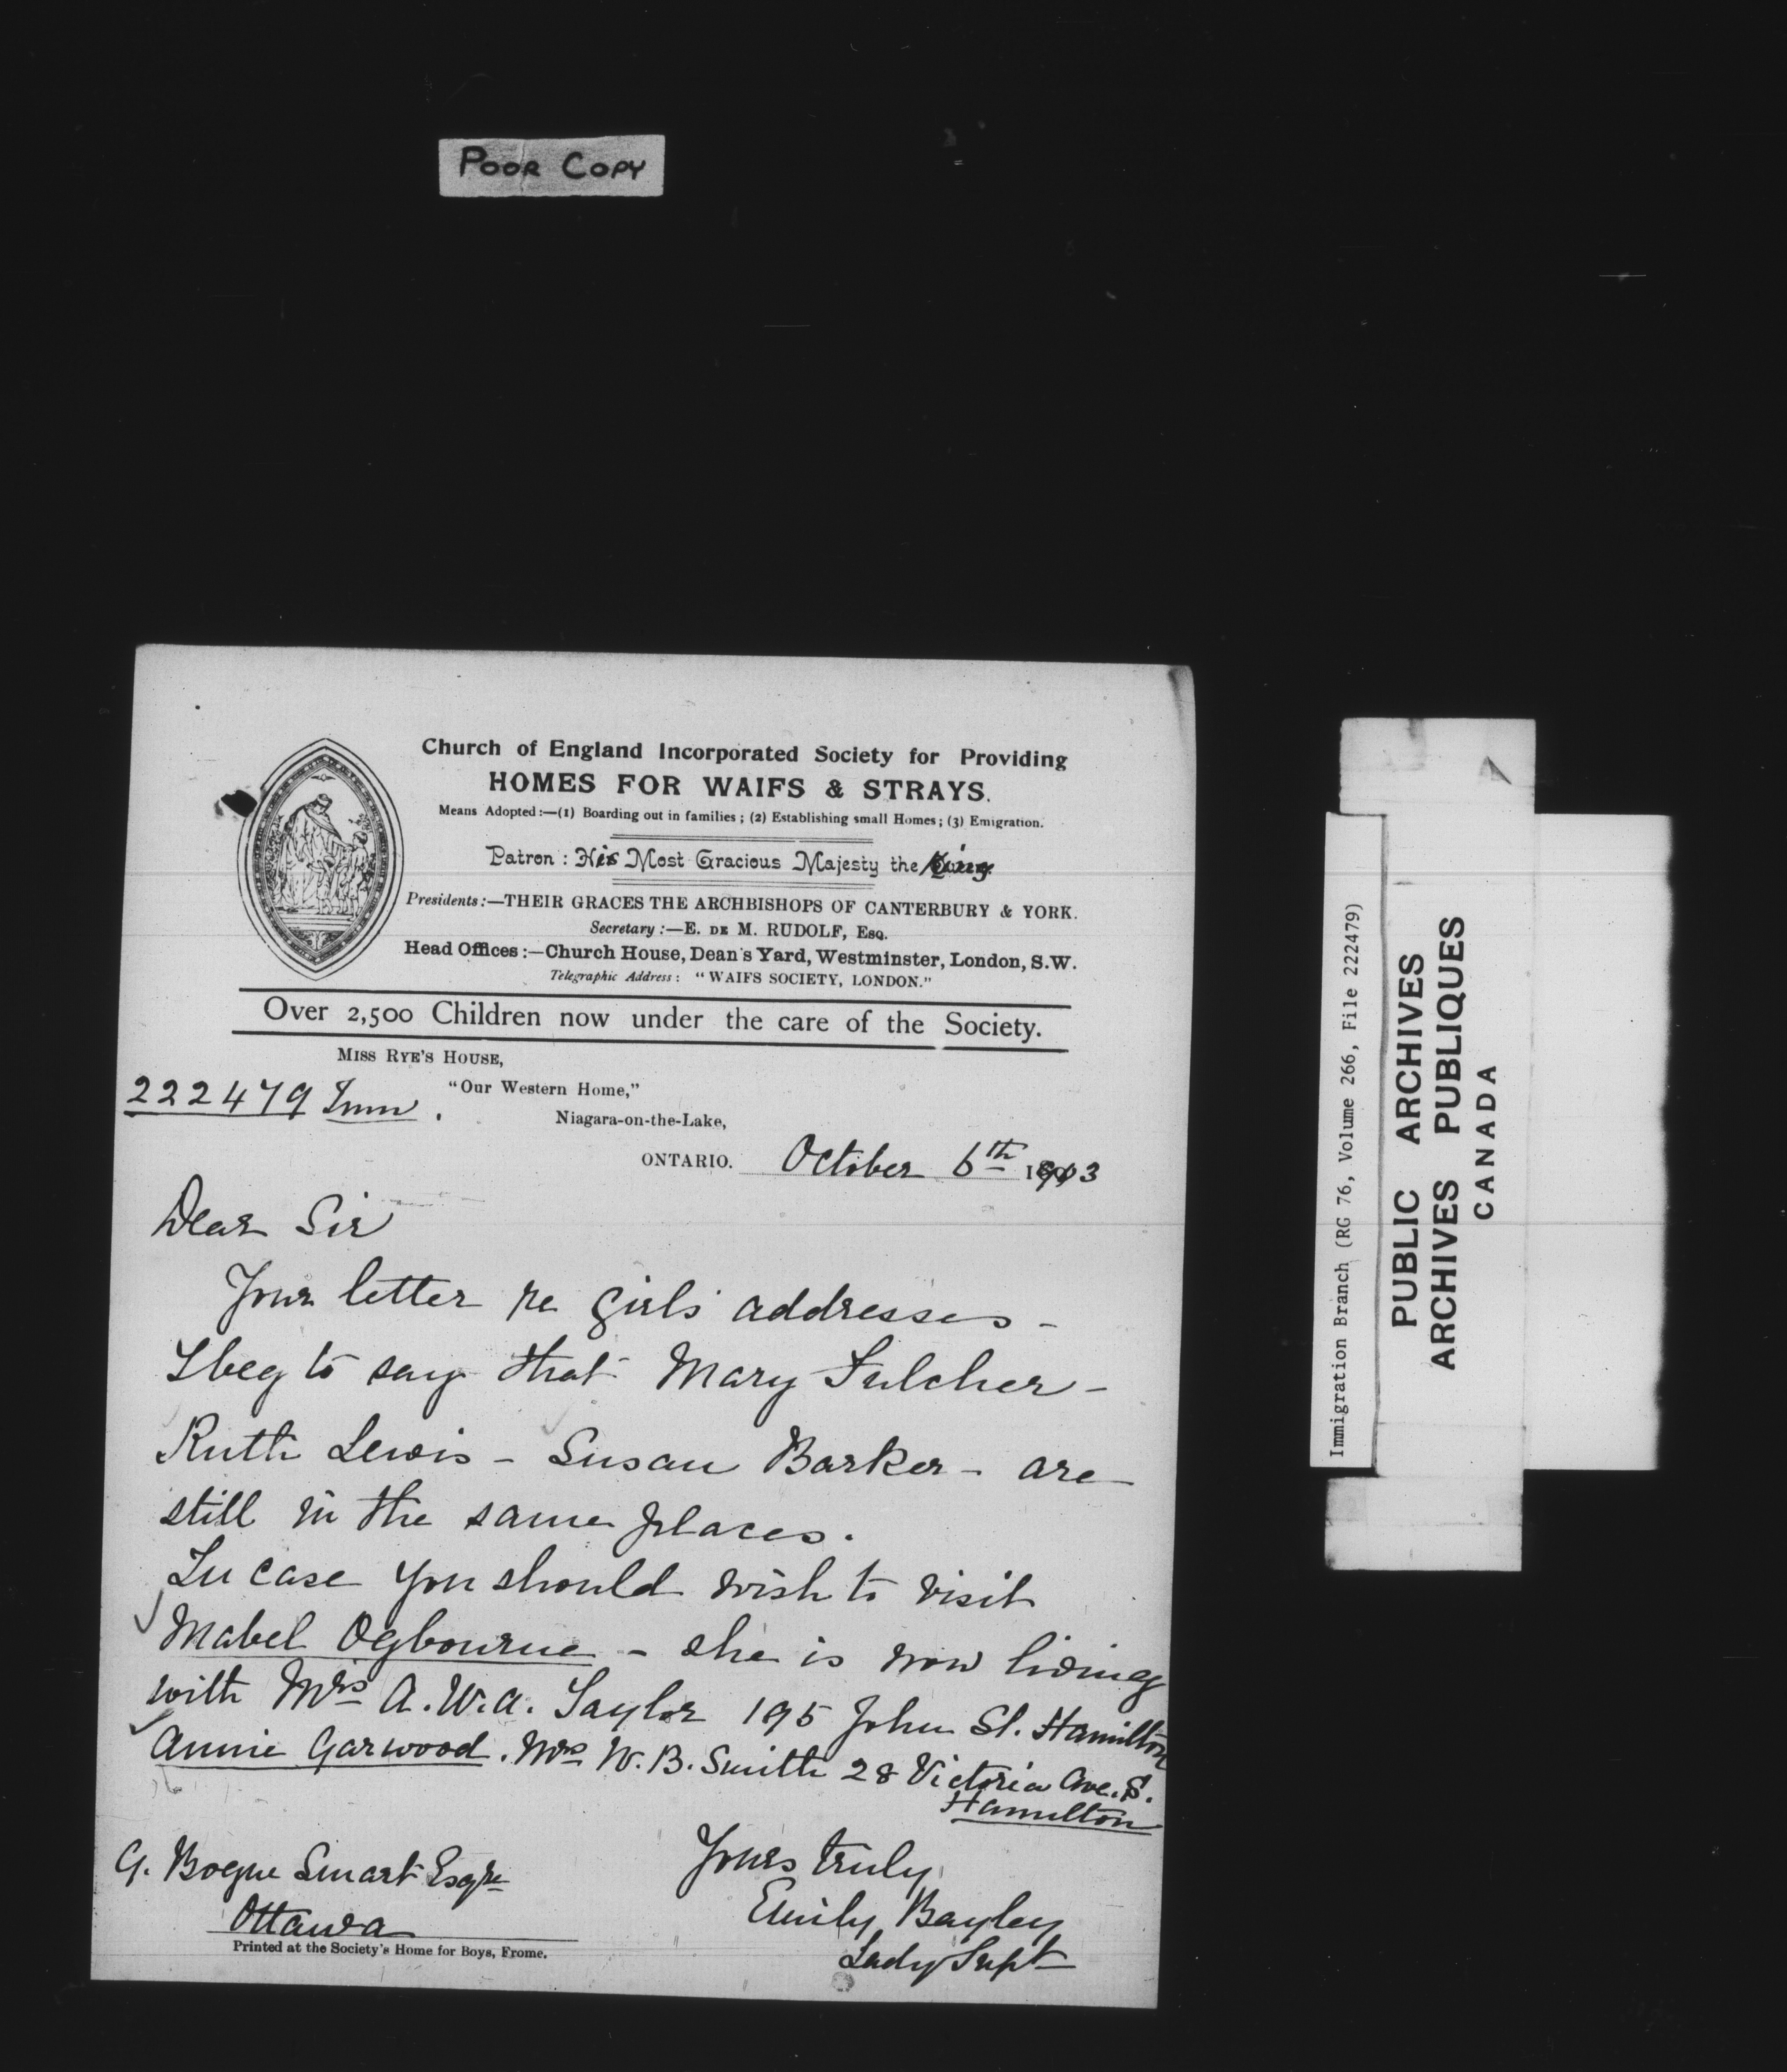 POOR COPY
Church of England Incorporated Society for Providing
HOMES FOR WAIFS & STRAYS.
Means Adopted:—(1) Boarding out in families; (2) Establishing small Homes; (3) Emigration.
Patron: His Most Gracious Majesty the King.
Presidents:—THEIR GRACES THE ARCHBISHOPS OF CANTERBURY & YORK.
Secretary:—E. DE M. RUDOLF, ESQ.
Head Offices:—Church House, Dean's Yard, Westminster, London, S.W.
Telegraphic Address: "WAIFS SOCIETY, LONDON."
Over 2,500 Children now under the care of the Society.
MISS RYE'S HOUSE,
222479 Imm.
"Our Western Home,"
Niagara-on-the-Lake,
ONTARIO. October 6th 1903
Dear Sir
Your letter re girls' addresses -
I beg to say that Mary Fulcher -
Ruth Lewis - Susan Barker - are
still in the same places.
In case you should wish to visit
Mabel Ogbourne - she is now living
with Mrs A. W. A. Taylor 195 John St. Hamilton
Annie Garwood. Mrs W. B. Smith 28 Victoria Ave. S.
Hamilton
Yours truly
Emily Bayley
Lady Supt
G. Bogue Smart Esqre
Ottawa
Printed at the Society's Home for Boys, Frome.
Immigration Branch (RG 76, Volume 266, File 222479)
PUBLIC ARCHIVES
ARCHIVES PUBLIQUES
CANADA